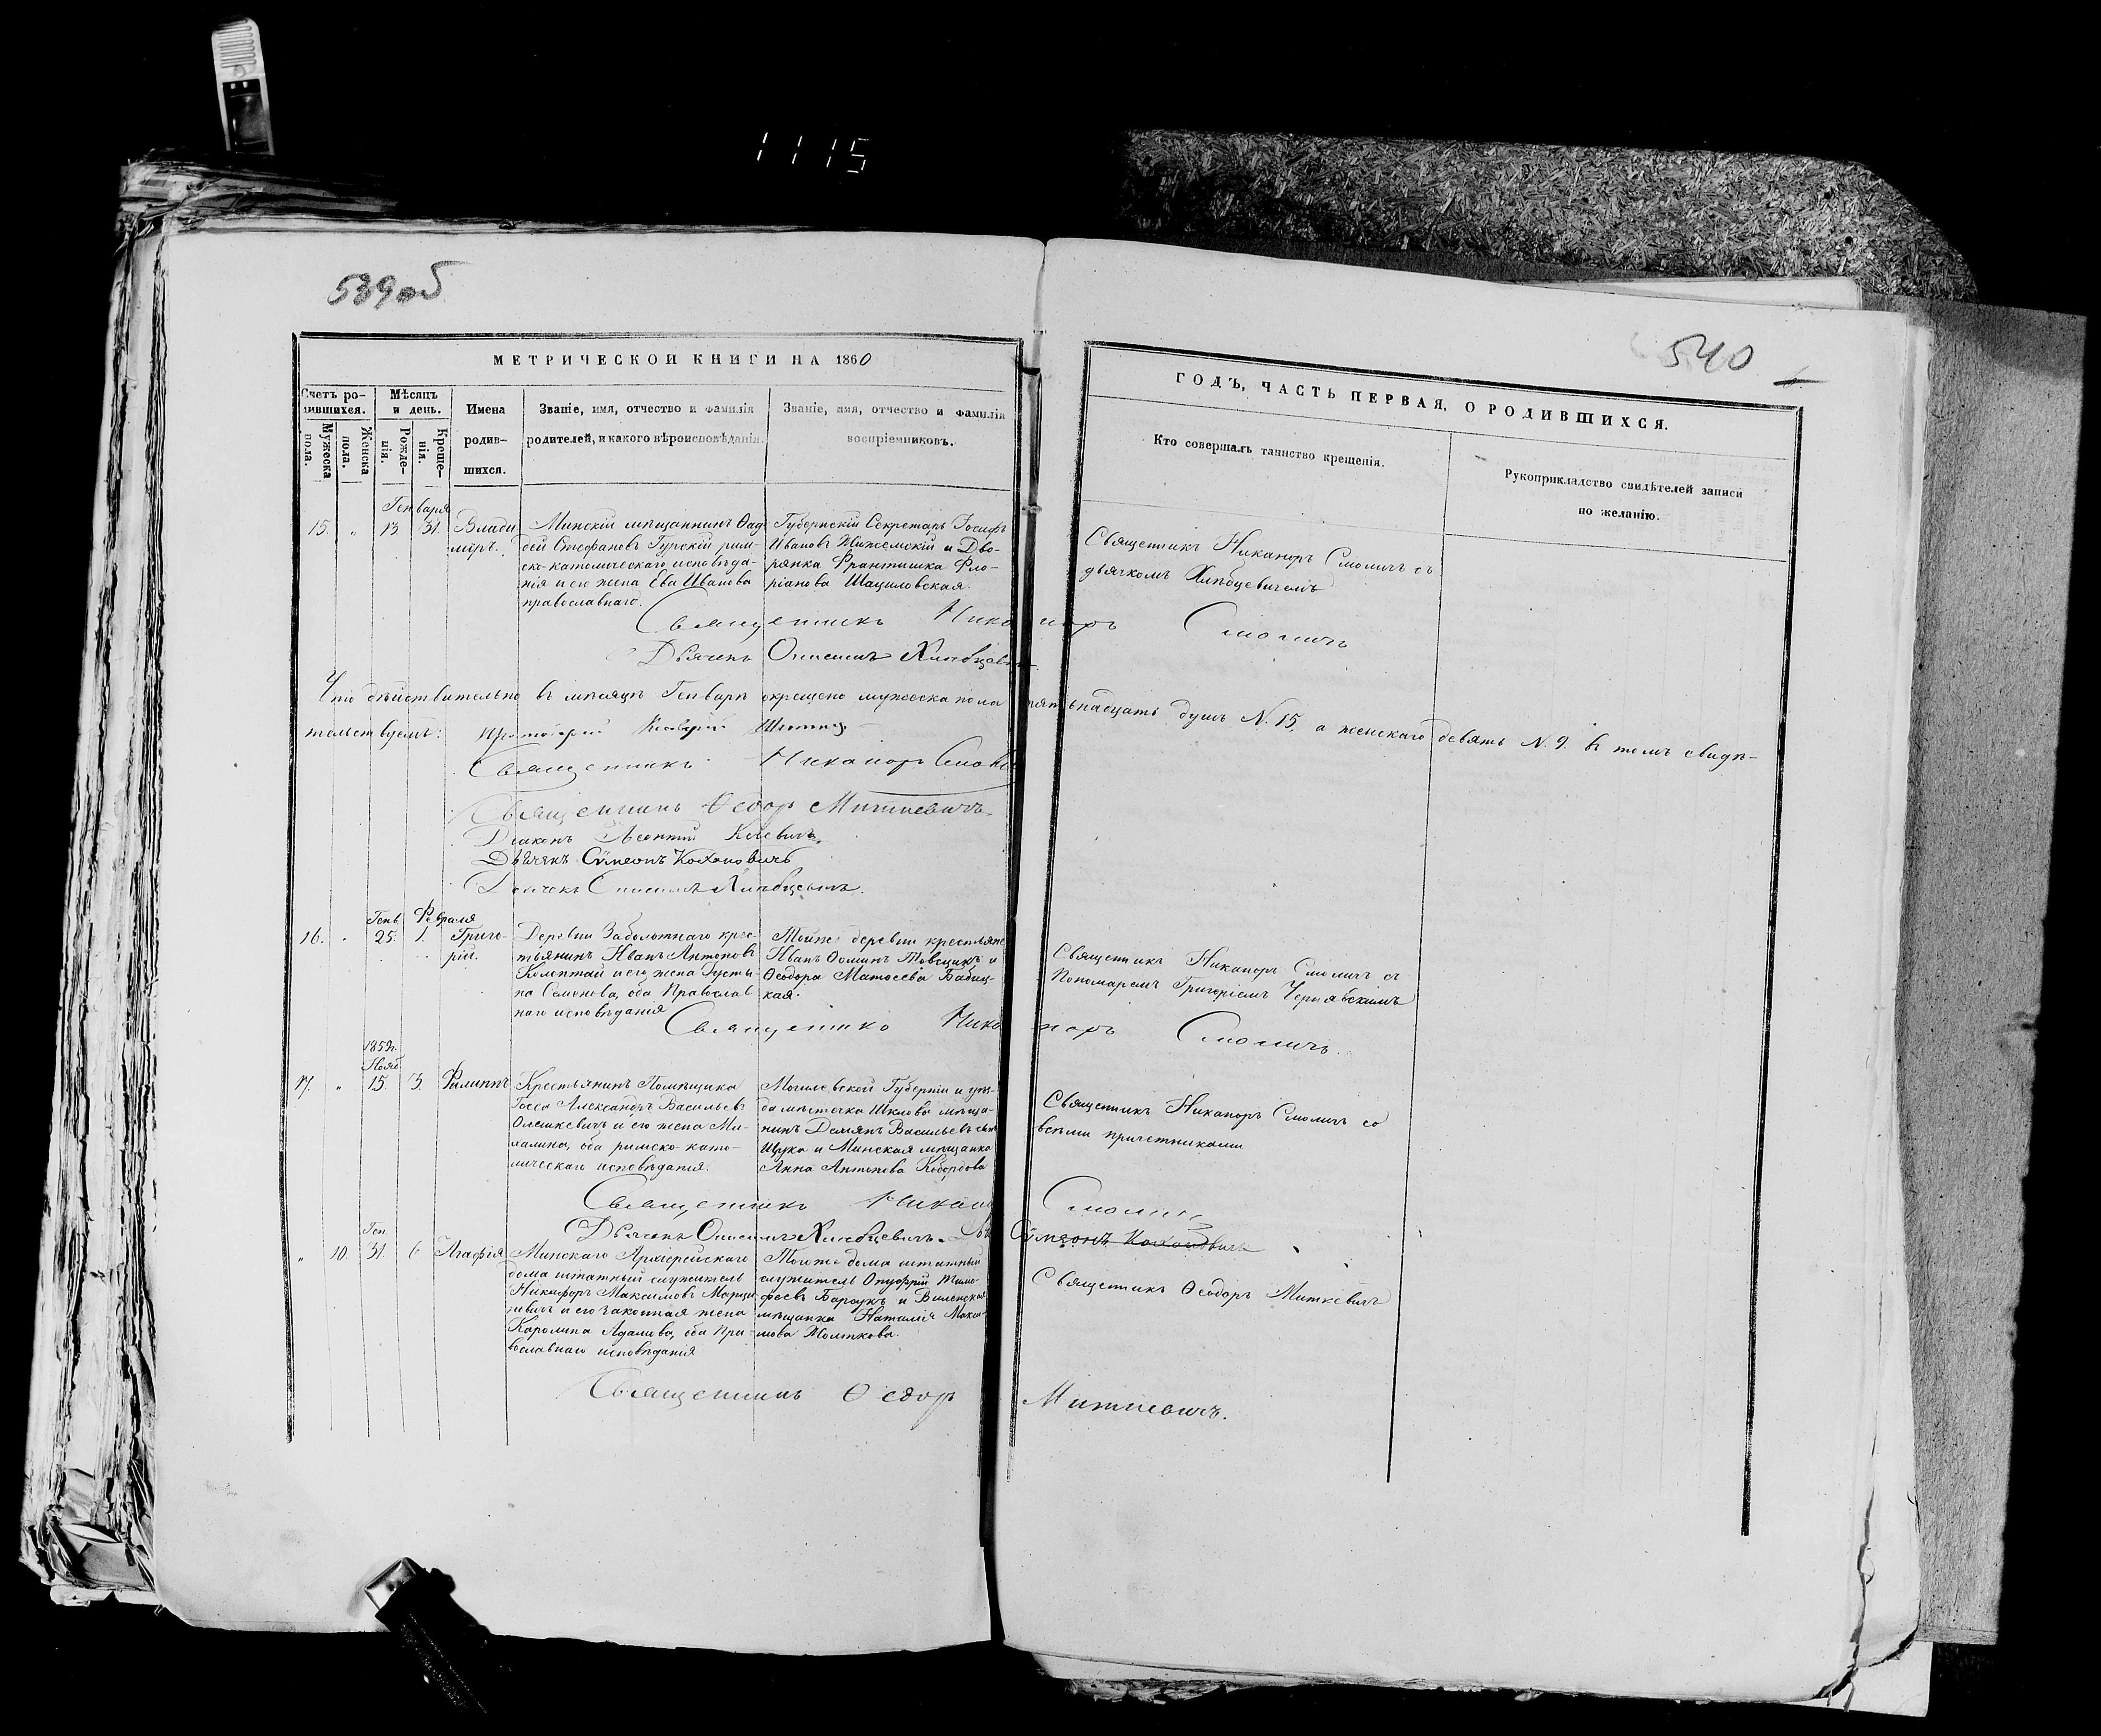 1115
539об
540
МЕТРИЧЕСКОЙ КНИГИ НА 1860
ГОДЪ, ЧАСТЬ ПЕРВАЯ, О РОДИВШИХСЯ.
Счетъ ро-
дившихся.
Мужеска
пола.
Женска
пола.
Мѣсяцъ
и день.
Рожде-
нія.
Креще-
нія.
Имена
родив-
шихся.
Званіе, имя, отчество и фамилія
родителей, и какого вѣроисповѣданія.
Званіе, имя, отчество и фамилія
воспріемниковъ.
Кто совершалъ таинство крещенія.
Рукоприкладство свидѣтелей записи
по желанію.
Генваря
15. „ 13. 31.
Влади
міръ.
Минскій мѣщанинъ Ѳад
дей Стефановъ Гурскій рим-
ско-католическаго исповѣда-
нія и его жена Ева Иванова
православнаго.
Губернскій Секретарь Іосифъ
Ивановъ Жижемскій и Дво-
рянка Франтишка Фло-
ріанова Шациловская.
Священникъ Никаноръ Смоличъ съ
дьячкомъ Хлѣбцевичемъ
Священникъ Никаноръ Смоличъ
Дьячекъ Онисимъ Хлѣбцевичъ
Что дѣйствительно въ мѣсяцѣ Генварѣ окрещено мужеска пола пятьнадцать душъ N. 15, а женскаго девять N. 9. въ томъ свидѣ-
тельствуемъ: Протоіерей
Священникъ Никаноръ Смоличъ
Священникъ Ѳедор Миткевичъ
Діаконъ Леонтій
Дьячекъ Сѵмеонъ Кохановичъ
Дьячекъ Онисимъ Хлѣбцевичъ.
Генв. Февраля
16. „ 25. 1.
Григо-
рій.
Деревни Заболотнаго крес-
тьянинъ Иванъ Антоновъ
Колоптай и его жена Густи-
на Семенова, оба Православ
наго исповѣданія
Тойже деревни крестьяне
Иванъ Ѳоминъ Товсцикъ и
Ѳеодора Матѳеева Бабиц-
кая.
Священникъ Никаноръ Смоличъ съ
Пономаремъ Григоріемъ Чернявскимъ
Священникъ Никаноръ Смоличъ.
1859г.
Нояб.
17. „ 15. 3
Филиппъ
Крестьянинъ Помѣщика
Гесса Александръ Васильевъ
Олешкевичъ и его жена Ми-
халина, оба римско-като-
лическаго исповѣданія.
Могилевской Губерніи и уѣз-
да мѣстечка Шклова мѣща-
нинъ Демянъ Васильевъ сынъ
Щука и Минская мѣщанка
Анна Антонова Кобордова
Священникъ Никаноръ Смоличъ со
всѣми причетниками
Священникъ Никаноръ Смоличъ
Дьячекъ Онисимъ Хлѣбцевичъ. Сѵмеонъ Кохановичъ
Ген.
„ 10. 31. 6
Агафія
Минскаго Архіерейскаго
дома штатный служитель
Никифоръ Максимовъ Марци
кевичъ и его законная жена
Каролина Адамова, оба Пра-
вославнаго исповѣданія
Тогоже дома штатный
служитель Онуфрій Тимо-
феевъ Бараукъ и Виленская
мѣщанка Наталія Макси-
мова Толпкова.
Священникъ Ѳеодоръ Миткевичъ
Священникъ Ѳедоръ Миткевичъ.